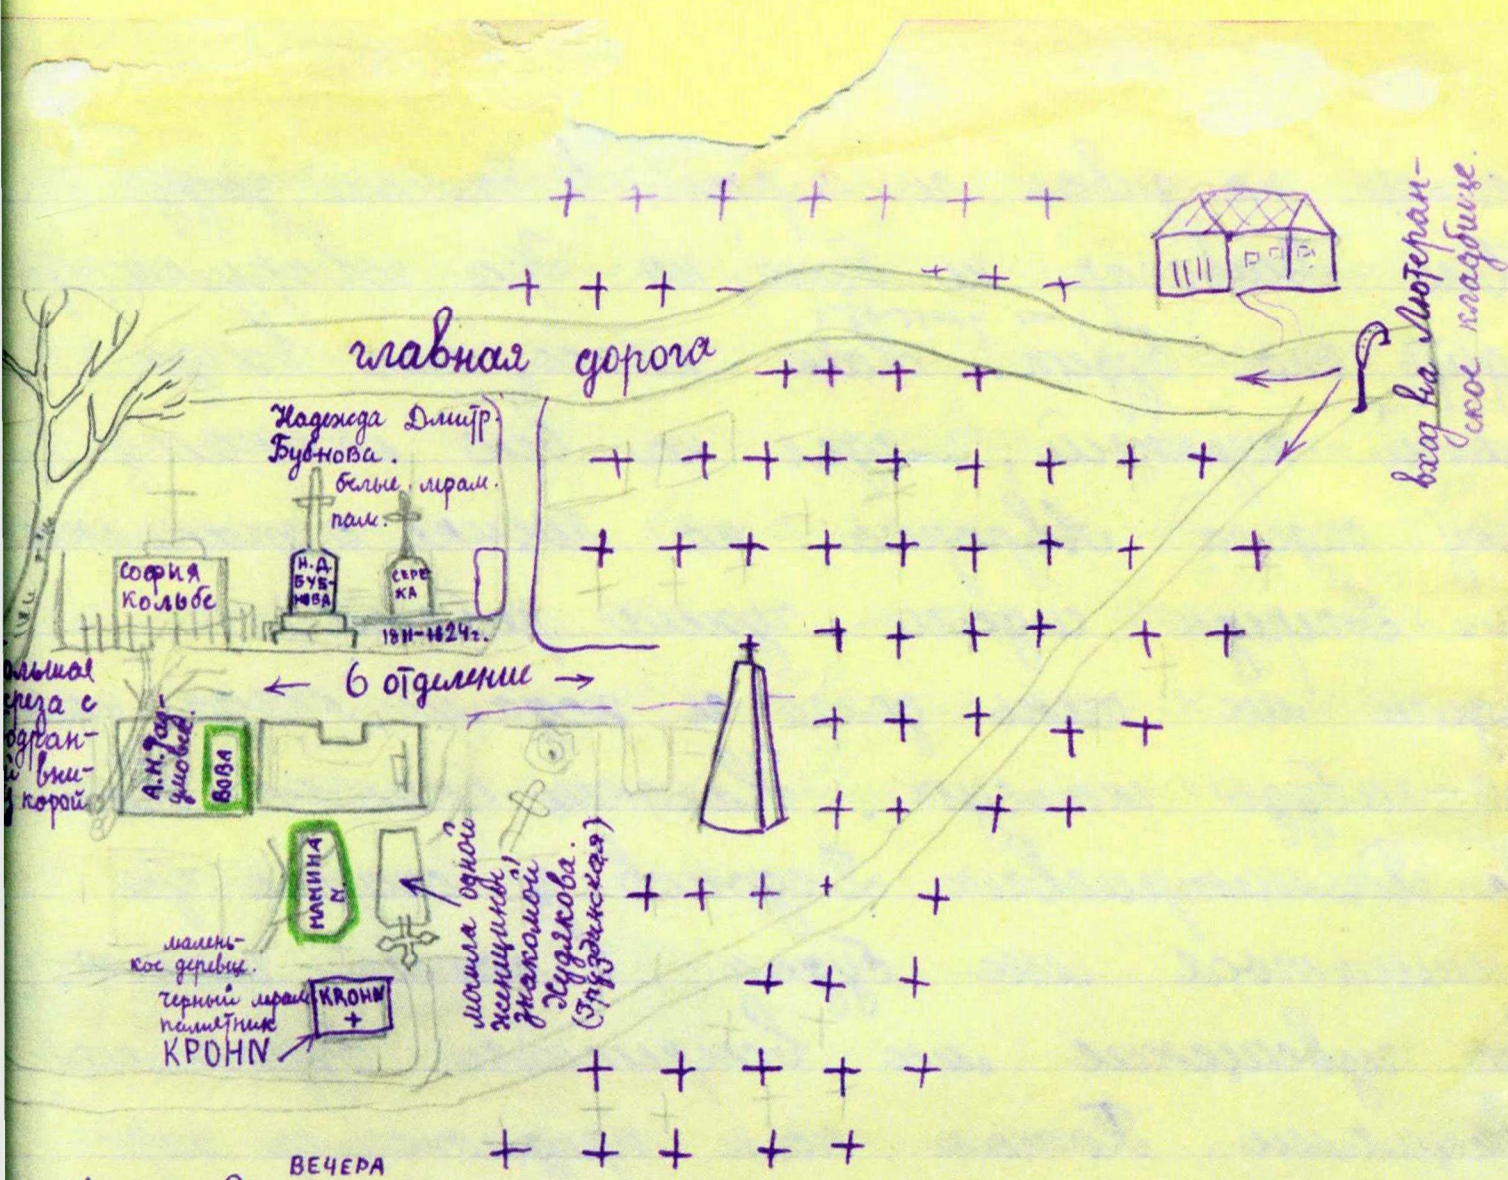 вход на Лютеран-
ское кладбище.
главная дорога
Надежда Дмитр.
Бубнова.
белые мрам.
пам.
СОФИЯ
КОЛЬБЕ
Н.Д.
БУБ-
НОВА
СЕРЕ
ЖА
1811-1824г.
← 6 отделение →
ольшая
ереза с
одран-
й вни-
у корой
А.Н.
умовые.
ВОВА
МАМИНА
М
могила одной
женщины,
знакомой
Худякова.
(Груздинская)
малень-
кое деревце.
черный мрам
памятник
KPOHN
KROHN
+
ВЕЧЕРА